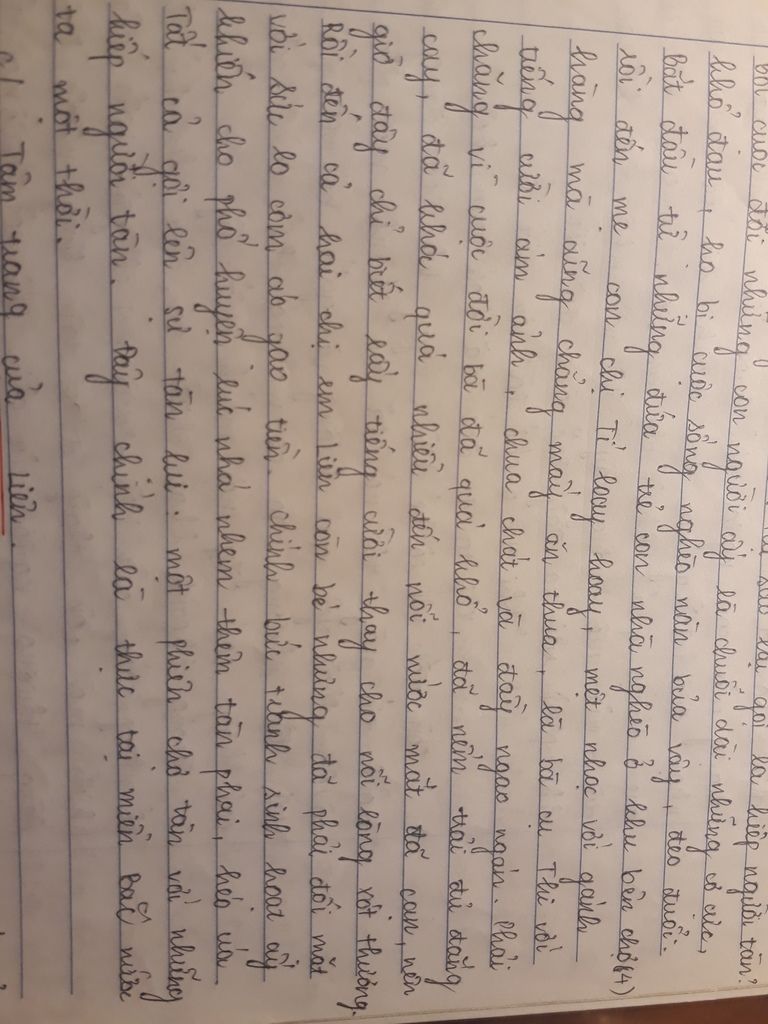 lại gọi là kiếp người tàn?
bởi cuộc đời những con người ấy là chuỗi dài những cơ cực,
khổ đau, họ bị cuộc sống nghèo nàn bủa vây, đeo đuổi.
Bắt đầu từ những đứa trẻ con nhà nghèo ở khu bên chợ (64)
rồi đến mẹ con chị Tí loay hoay, mệt nhọc với gánh
hàng mà cũng chẳng mấy ăn thua, là bà cụ Thi với
tiếng cười ám ảnh, chua chát và đầy ngao ngán. Phải
chăng vì cuộc đời bà đã quá khổ, đã nếm trải đủ đắng
cay, đã khóc quá nhiều đến nỗi nước mắt đã cạn, nên
giờ đây chỉ biết lấy tiếng cười thay cho nỗi lòng xót thương.
Rồi đến cả hai chị em Liên còn bé nhưng đã phải đối mặt
với sức lo cơm áo gạo tiền. chính bức tranh sinh hoạt ấy
khiến cho phố huyện lúc nhá nhem thêm tàn phai, héo úa
Tất cả gợi lên sự tàn lụi. một phiên chợ tàn với những
kiếp người tàn. Đây chính là thực tại miền Bắc nước
ta một thời.
c/ Tâm trạng của Liên.